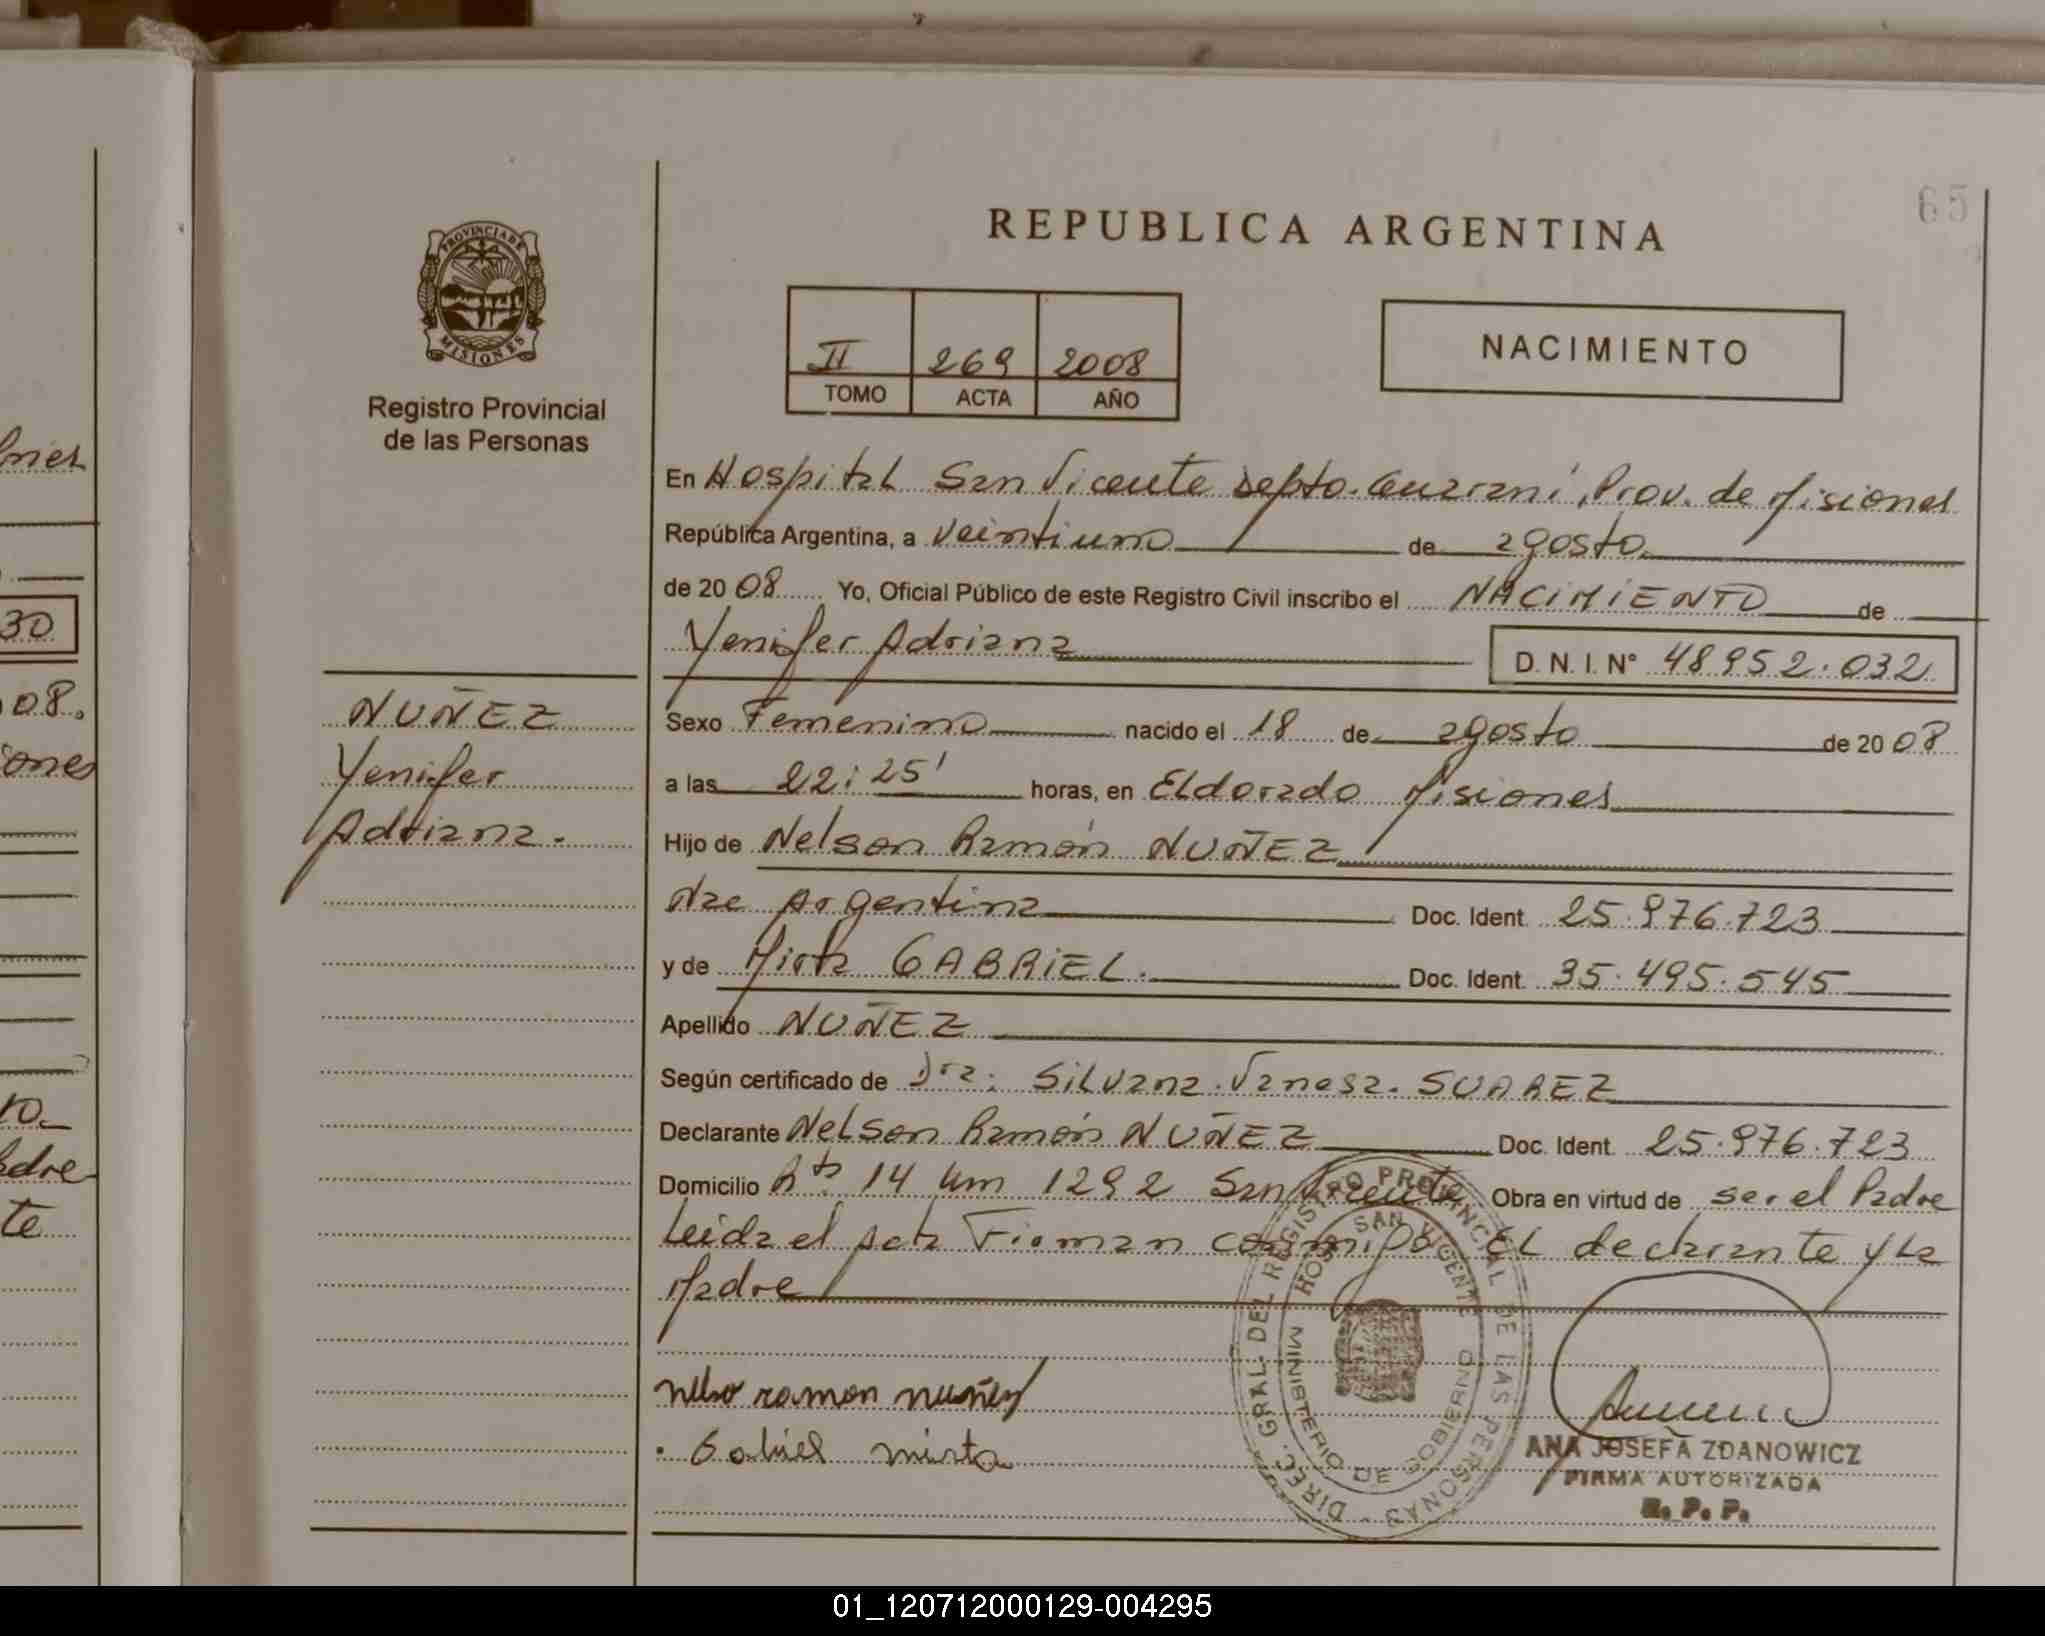 65
PROVINCIA DE
MISIONES
Registro Provincial
de las Personas
REPUBLICA ARGENTINA
II 269 2008
TOMO ACTA AÑO
NACIMIENTO
En Hospital San Vicente Depto. Guaraní, Prov. de Misiones
República Argentina, a veintiuno de agosto
de 2008 Yo, Oficial Público de este Registro Civil inscribo el NACIMIENTO de
Yenifer Adriana D. N. I. N° 48952.032
NUÑEZ
Yenifer
Adriana.
Sexo Femenino nacido el 18 de agosto de 2008
a las 22:25' horas, en Eldorado Misiones
Hijo de Nelson Ramón NUÑEZ
Nac Argentina Doc. Ident. 25.976.723
y de Mirta GABRIEL. Doc. Ident. 35.495.545
Apellido NUÑEZ
Según certificado de Dra. Silvana. Vanesa. SUAREZ
Declarante Nelson Ramón NUÑEZ Doc. Ident. 25.976.723
Domicilio Rta 14 Km 1292 San Vicente Obra en virtud de ser el Padre
Leida el acta Firman conmigo El declarante y La
Madre
nelso ramon nuñez
Gabriel mirta
DIREC. GRAL. DEL REGISTRO PROVINCIAL DE LAS PERSONAS
HOSP. SAN VICENTE
MINISTERIO DE GOBIERNO
ANA JOSEFA ZDANOWICZ
FIRMA AUTORIZADA
R. P. P.
30
08.
te
01_120712000129-004295